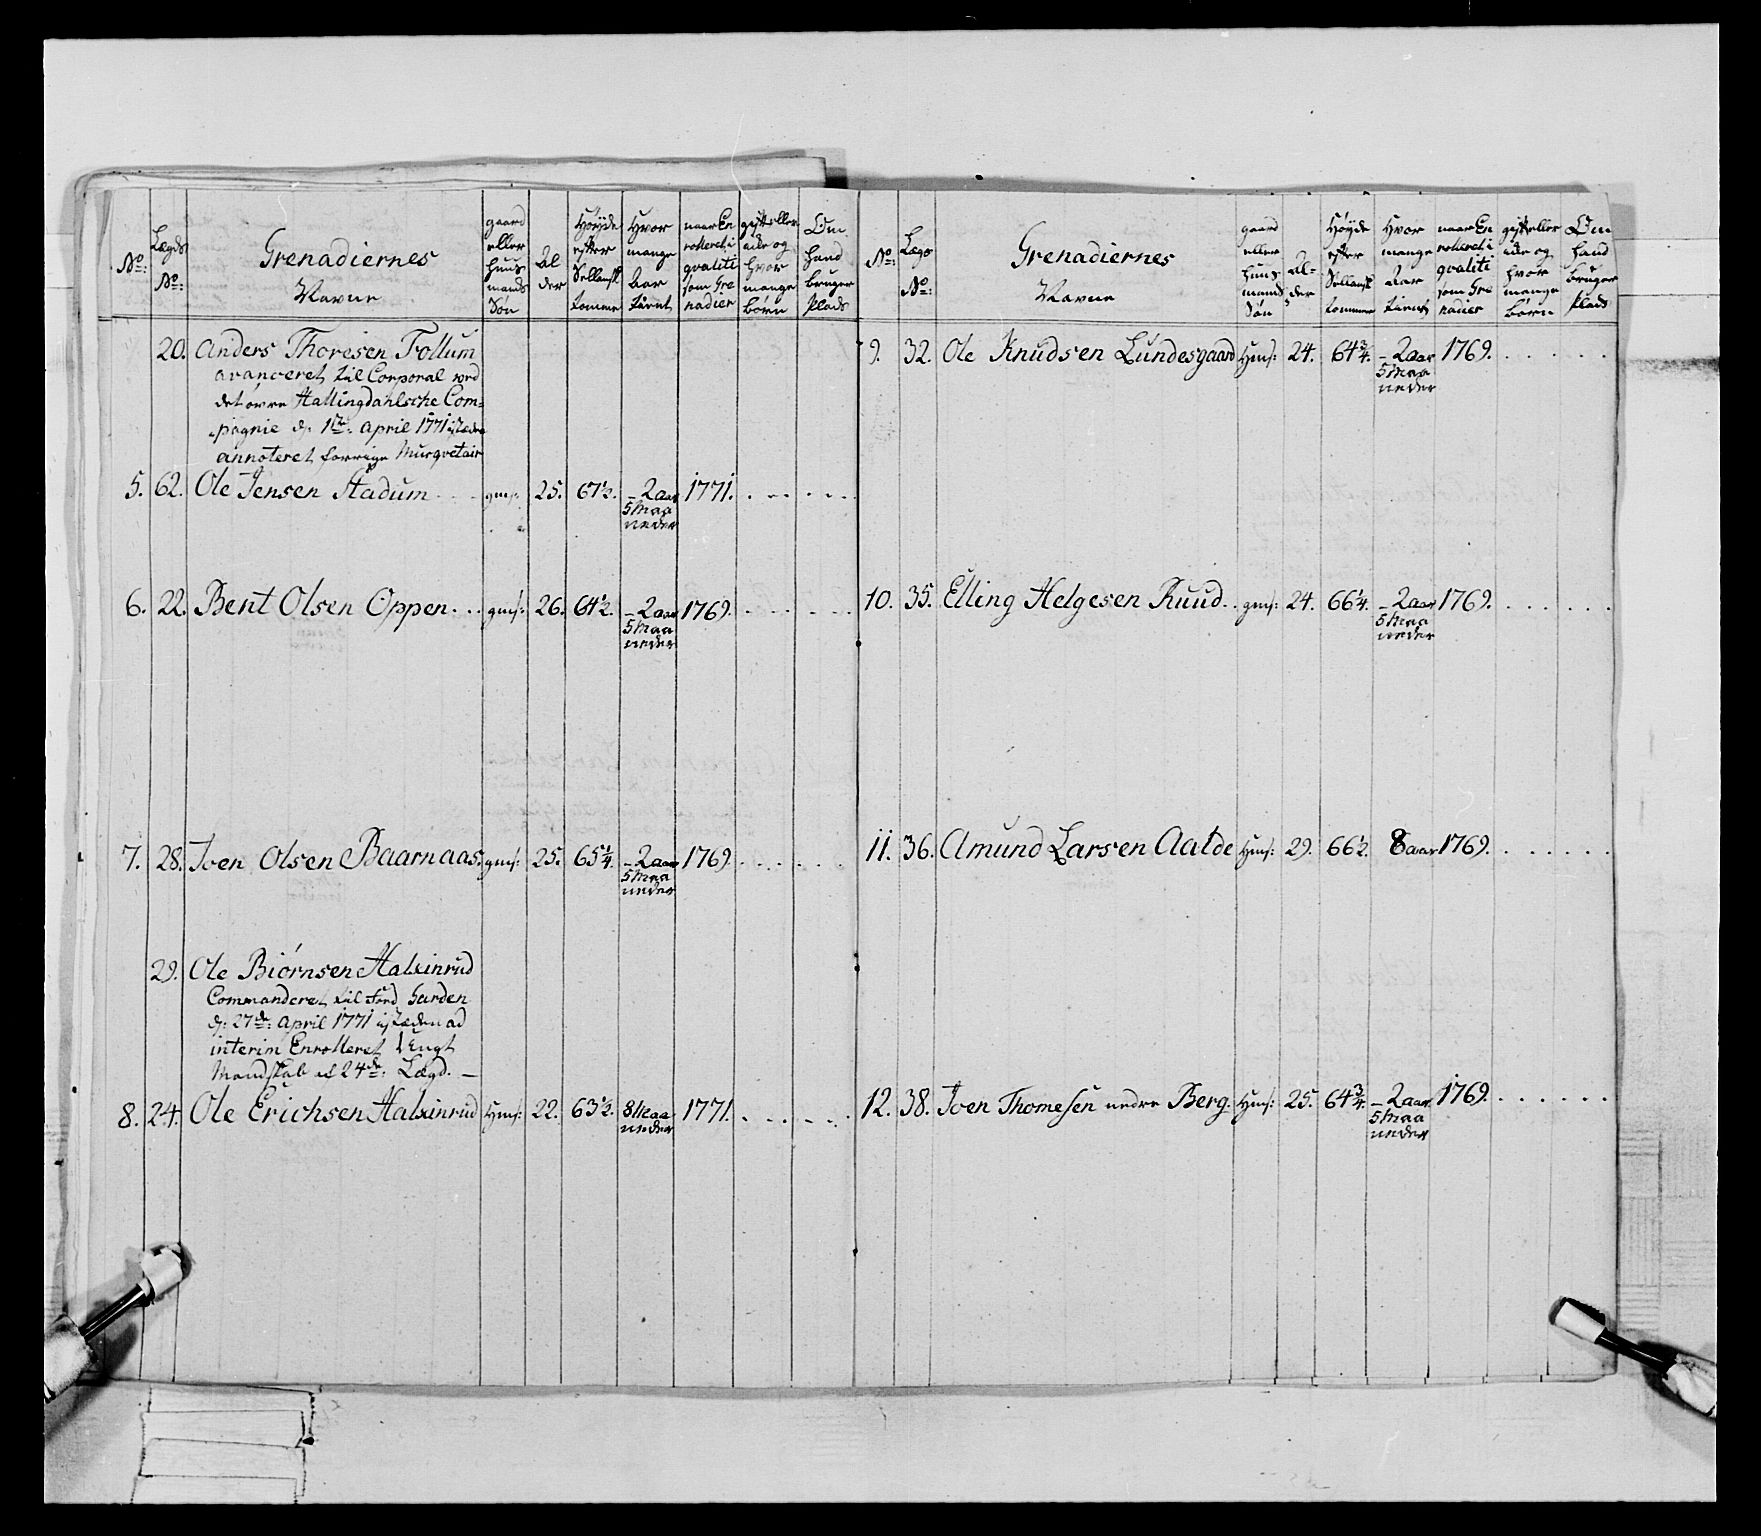 No:
Lægds No:
Grenadiernes Navne
gaard eller huus mands Søn
Al der
Høyde efter Sellansk tomme
Hvor mange Aar tient
naar En rolleret i qvaliti som Gre nadier
gift eller icke og hvor mange børn
Om hand bruger Plads
20. Anders Thoresen Follum
avanceret til Corporal ved
det øvre Hallingdahlsche Com=
pagnie d: 1ste: April 1771 istæden
annoteret forrige Musqvetair
5. 62. Ole Jensen Stadum gms: 25. 67½. – 2 aar 1771.
5 Maa
neder
6. 22. Bent Olsen Oppen gms: 26. 64½. – 2 aar 1769.
5 Maa
neder
7. 28. Joen Olsen Baarnaas. gms: 25. 65¼. – 2 aar 1769.
5 Maa
neder
29. Ole Biørnsen Halsinrud
Commanderet til Garden
d: 27de: April 1771 istæden ad
interim Enrolleret Ungt
Mandskab af 24de: Lægd. –
8. 24. Ole Erichsen Halsinrud Hms: 22. 63½. 8 Maa 1771.
neder
No:
Lægs No:
Grenadiernes Navne
gaard eller huus mands Søn
Al= der
Høyde efter Sellansk tomme
Hvor mange Aar tient
naar En rolleret i qvaliti som Gre nadier
gift eller icke og hvor mange børn
Om hand bruger Plads
9. 32. Ole Knudsen Lundesgaard Hms: 24. 64¾. – 2 aar 1769.
5 Maa
neder
10. 35. Elling Helgesen Ruud gms: 24. 66¼. – 2 aar 1769.
5 Maa
neder
11. 36. Amund Larsen Aalde Hms: 29. 66½. 8 aar 1769.
12. 38. Joen Thomesen nedre Berg. Hms: 25. 64¾. – 2 aar. 1769.
5 Maa
neder